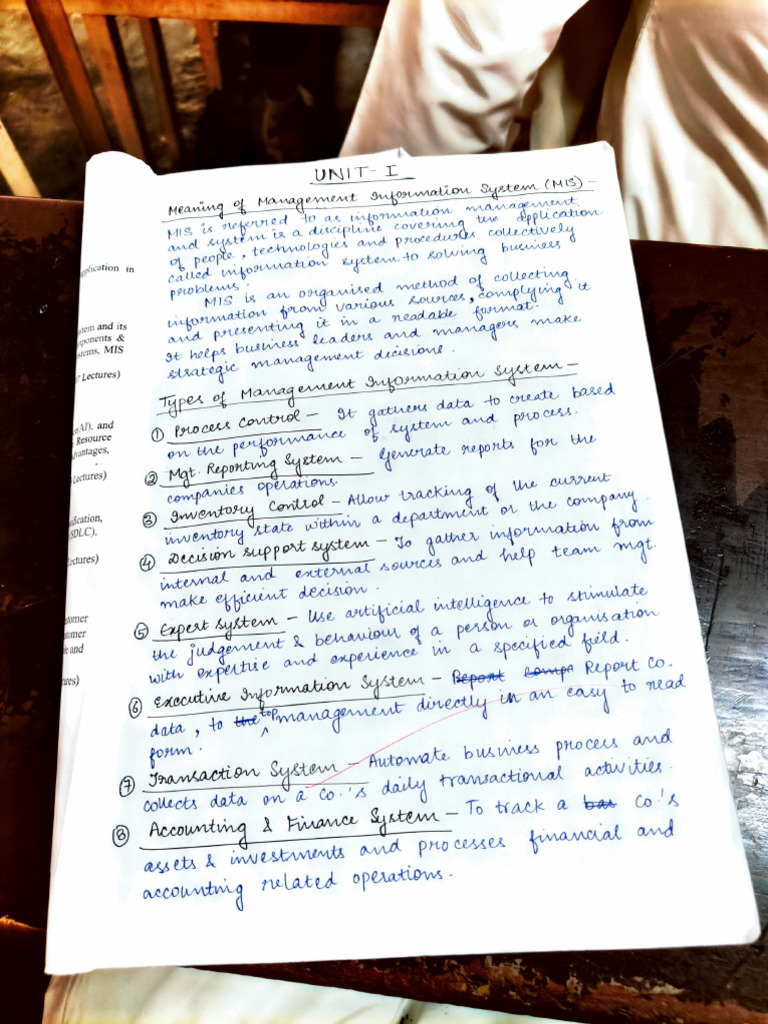 UNIT-I
Meaning of Management Information System (MIS) -
MIS is referred to as information management
and system is a discipline covering the application
of people, technologies and procedures collectively
called information system to solving business
problems.
MIS is an organised method of collecting
information from various sources, complying it
and presenting it in a readable format.
It helps business leaders and managers make
strategic management decisions.
Types of Management Information System -
① Process Control - It gathers data to create based
on the performance of system and process.
② Mgt. Reporting System - Generate reports for the
companies operations.
③ Inventory Control - Allow tracking of the current
inventory state within a department or the company.
④ Decision support system - To gather information from
internal and external sources and help team mgt.
make efficient decision.
⑤ Expert system - Use artificial intelligence to stimulate
the judgement & behaviour of a person or organisation
with expertrie and experience in a specified field.
⑥ Executive Information System - Report Comp Report Co.
data, to the top management directly in an easy to read
form.
⑦ Transaction System - Automate business process and
collects data on a Co.'s daily transactional activities.
⑧ Accounting & Finance System - To track a Co.'s
assets & investments and processes financial and
accounting related operations.
plication in
stem and its
ponents &
stems, MIS
Lectures)
AI), and
Resource
vantages,
Lectures)
fication,
SDLC).
ctures)
stomer
tomer
and
ures)